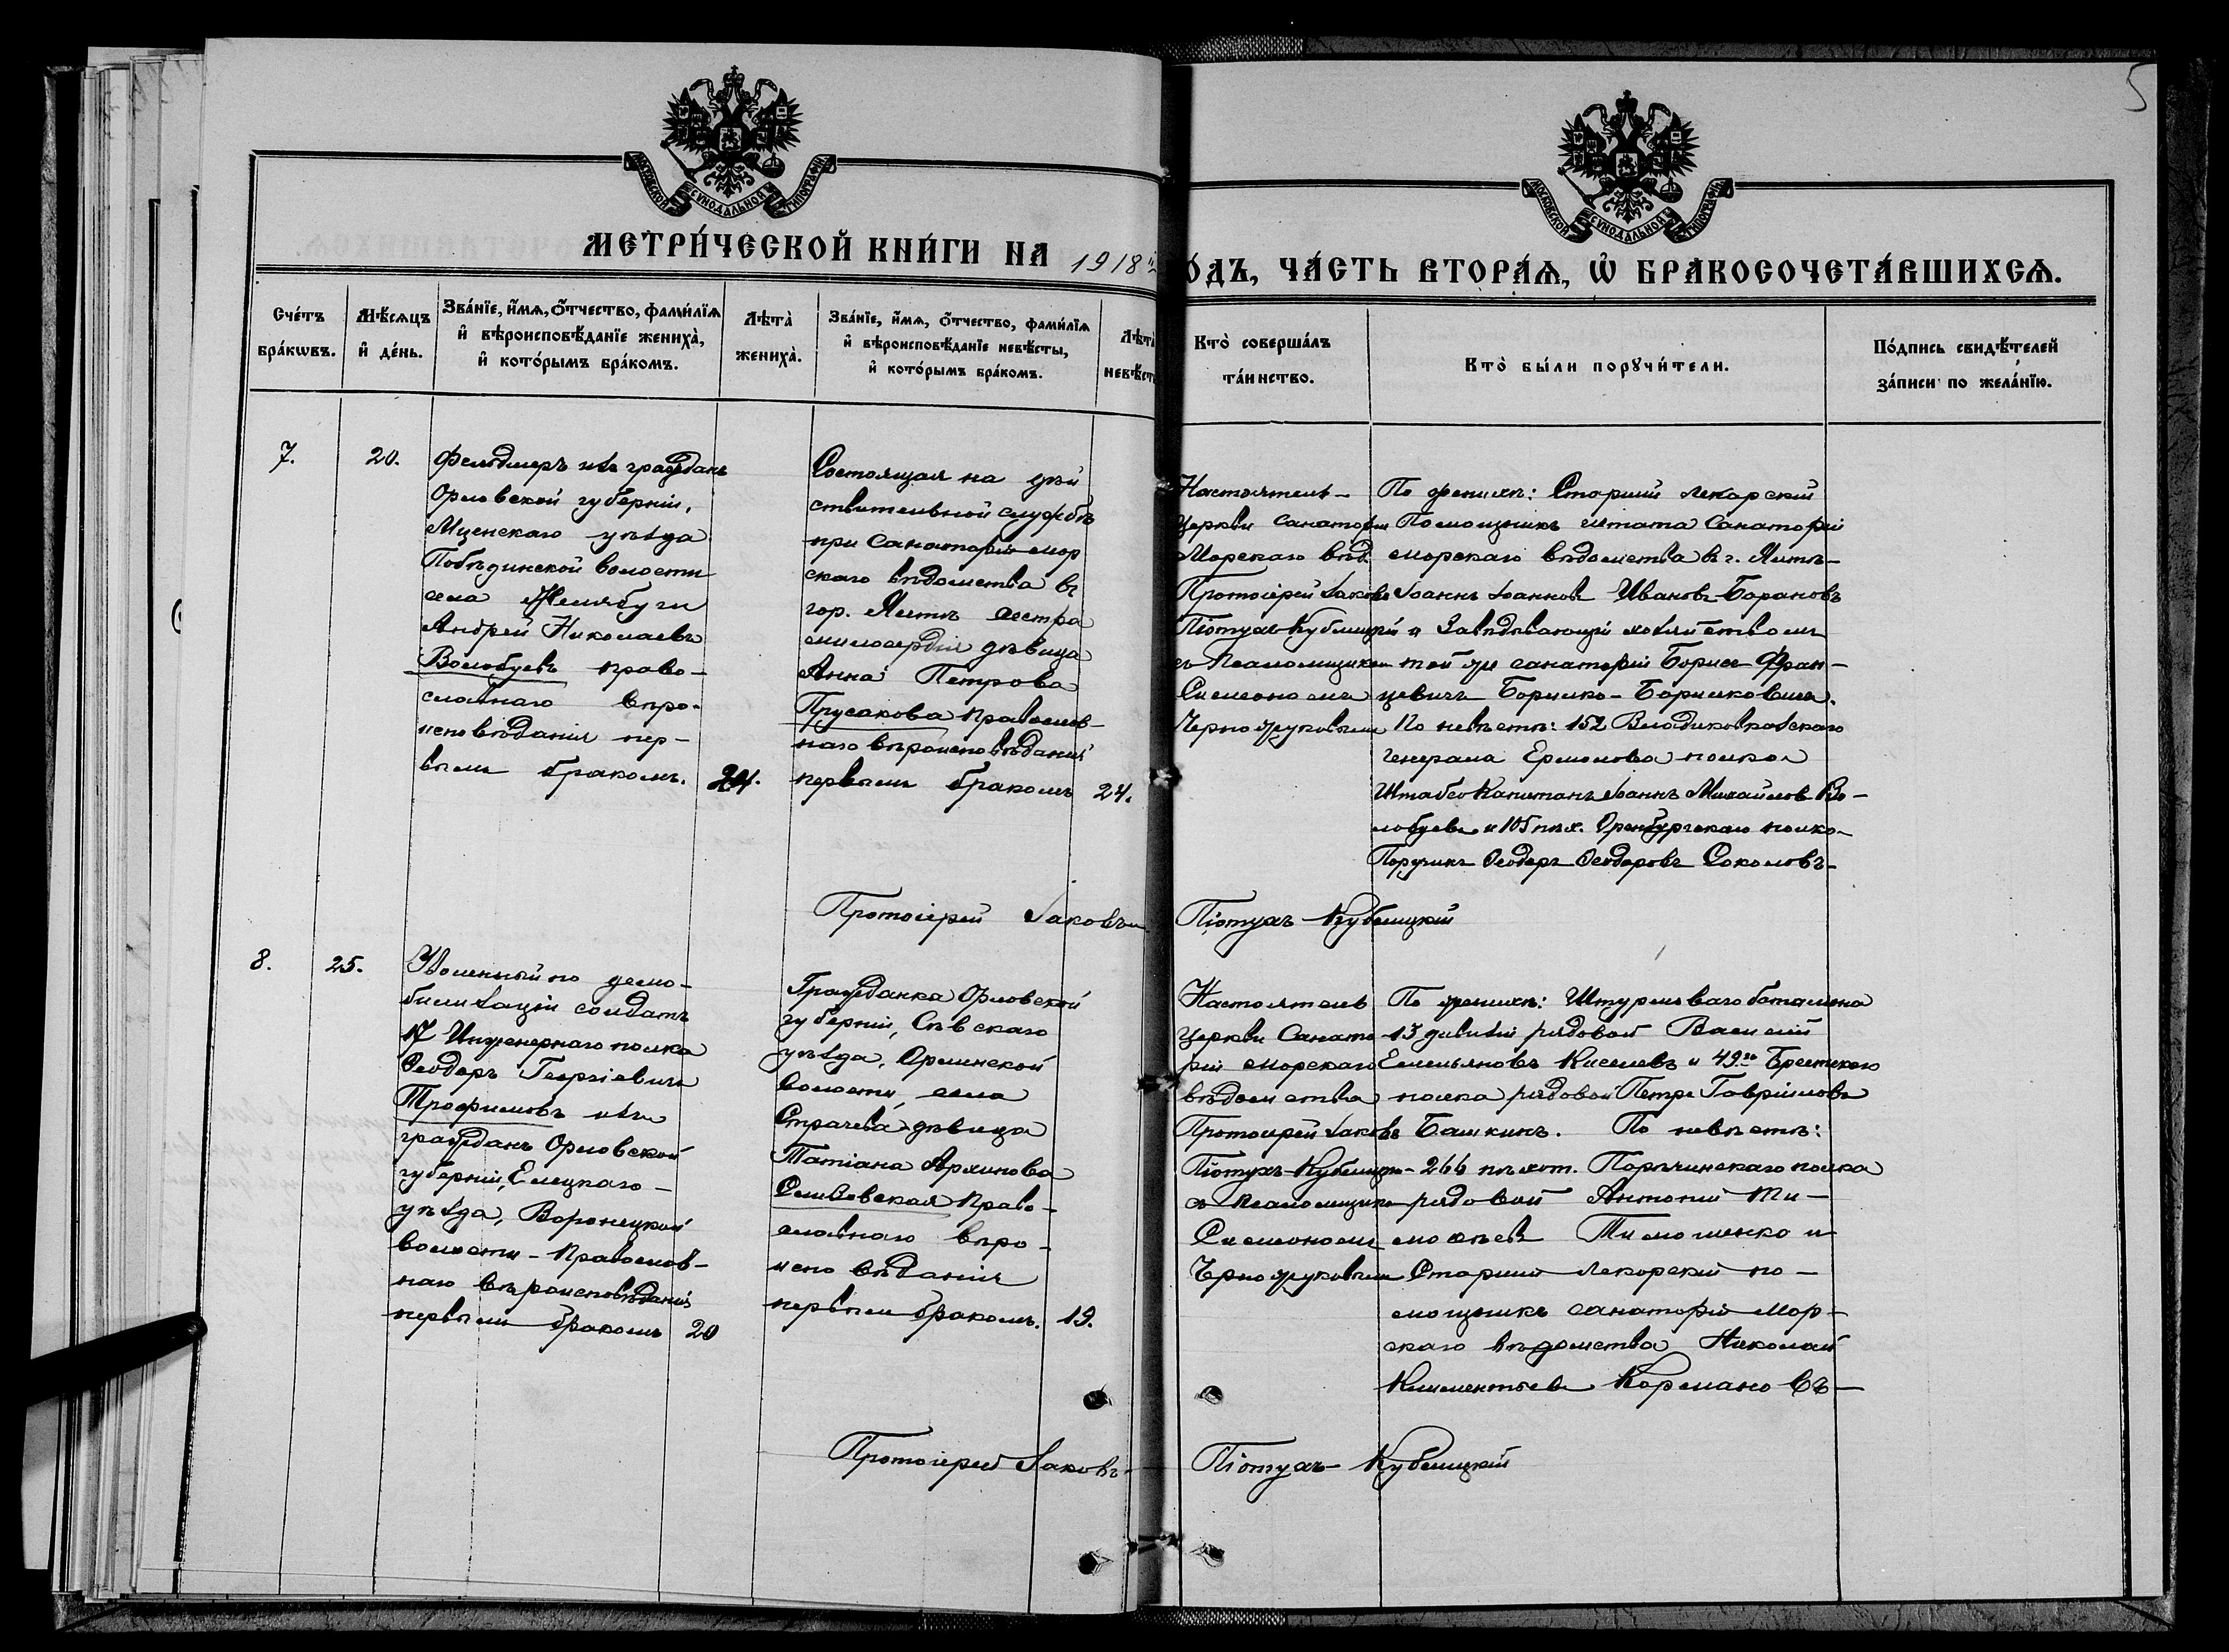 5
МОСКОВСКОЙ СѴНОДАЛЬНОЙ ТИПОГРАФІИ
МОСКОВСКОЙ СѴНОДАЛЬНОЙ ТИПОГРАФІИ
МЕТРИ́ЧЕСКОЙ КНИ́ГИ НА 1918
ОДЪ, ЧА́СТЬ ВТОРА́Ѧ, Ѡ҆ БРАКОСОЧЕТА́ВШИХСѦ.
Сче́тъ бра́кѡвъ.
Мѣ́сѧцъ и҆ де́нь.
Зва́нїе, и҆́мѧ, ѻ҆́тчество, фами́лїѧ
и҆ вѣроисповѣ́данїе жениха̀,
и҆ кото́рымъ бра́комъ.
Лѣта̀ жениха̀.
Зва́нїе, и҆́мѧ, ѻ҆́тчество, фами́лїѧ
и҆ вѣроисповѣ́данїе невѣ́сты,
и҆ кото́рымъ бра́комъ.
Лѣта̀ невѣ́ст
Кто̀ соверша́лъ
та́инство.
Кто̀ бы́ли порꙋчи́тели.
По́дпись свидѣ́телей
за́писи по жела́нїю.
7.
20.
Фельдшеръ изъ гражданъ
Орловской губерніи,
Мценскаго уѣзда
Побѣдинской волости
села Желябуги
Андрей Николаевъ
Волобуевъ право-
славнаго вѣро-
исповѣданія пер-
вымъ бракомъ.
24.
Состоящая на дѣй
ствительной службѣ
при Санаторіи мор
скаго вѣдомства въ
гор. Ялтѣ сестра
милосердія дѣвица
Анна Петрова
Прусакова православ-
наго вѣроисповѣданія
первымъ бракомъ
24.
Настоятель
Церкви Санаторіи
Морскаго вѣд.
Протоіерей Іаковъ
Піотухъ-Кублицкій
съ Псаломщикомъ
Симеономъ
Черножуковымъ
По женихѣ: Старшій лекарскій
Помощникъ штата Санаторіи
морскаго вѣдомства въ г. Ялтѣ-
Іоаннъ Іоанновъ Ивановъ-Барановъ
и Завѣдывающій хозяйствомъ
той же санаторіи Борисъ Фран-
цевичъ Боришко-Боришковичъ.
По невѣстѣ: 152 Владикавказскаго
Генерала Ермолова полка
Штабсъ Капитанъ Іоаннъ Михайловъ Во-
лобуевъ и 105 пѣх. Оренбургскаго полка
Поручикъ Ѳеодоръ Ѳеодоровъ Соколовъ-
Протоіерей Іаковъ Піотухъ-Кублицкій
8.
25.
Уволенный по демо-
билизаціи солдатъ
17 Инженернаго полка
Ѳеодоръ Георгіевичъ
Трофимовъ изъ
гражданъ Орловской
губерніи, Елецкаго-
уѣзда, Воронецкой
волости-Православ-
наго вѣроисповѣданія
первымъ бракомъ
20
Гражданка Орловской
губерніи, Сѣвскаго
уѣзда, Орлинской
волости, села
Страчева дѣвица
Татіана Архипова
Право-
славнаго вѣро-
исповѣданія
первымъ бракомъ.
19.
Настоятель
Церкви Санато
ріи морскаго
вѣдомства
Протоіерей Іаковъ
Піотухъ-Кублицкій
съ Псаломщикомъ
Симеономъ
Черножуковымъ
По женихѣ: Штурмоваго баталіона
13 дивизіи рядовой Василій
Емельяновъ Киселевъ и 49го Брестскаго
полка рядовой Петръ Гавріиловъ
Башкинъ. По невѣстѣ:
266 пѣхот. Порѣчинскаго полка
рядовой Антоній Ти-
моѳеевъ Тимошенко и
Старшій Лекарскій по-
мощникъ санаторіи Мор-
скаго вѣдомства Николай
Климентьевъ Кормановъ-
Протоіерей Іаковъ Піотухъ-Кублицкій